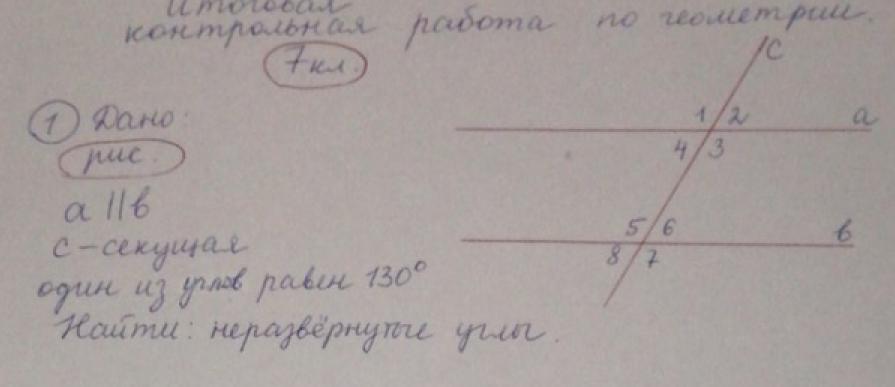 Итоговая
контрольная работа по геометрии.
7 кл.
1 Дано:
рис.
a || b
c - секущая
один из углов равен 130°
Найти: неразвёрнутые углы.
c
1 2 a
4 3
5 6 b
8 7